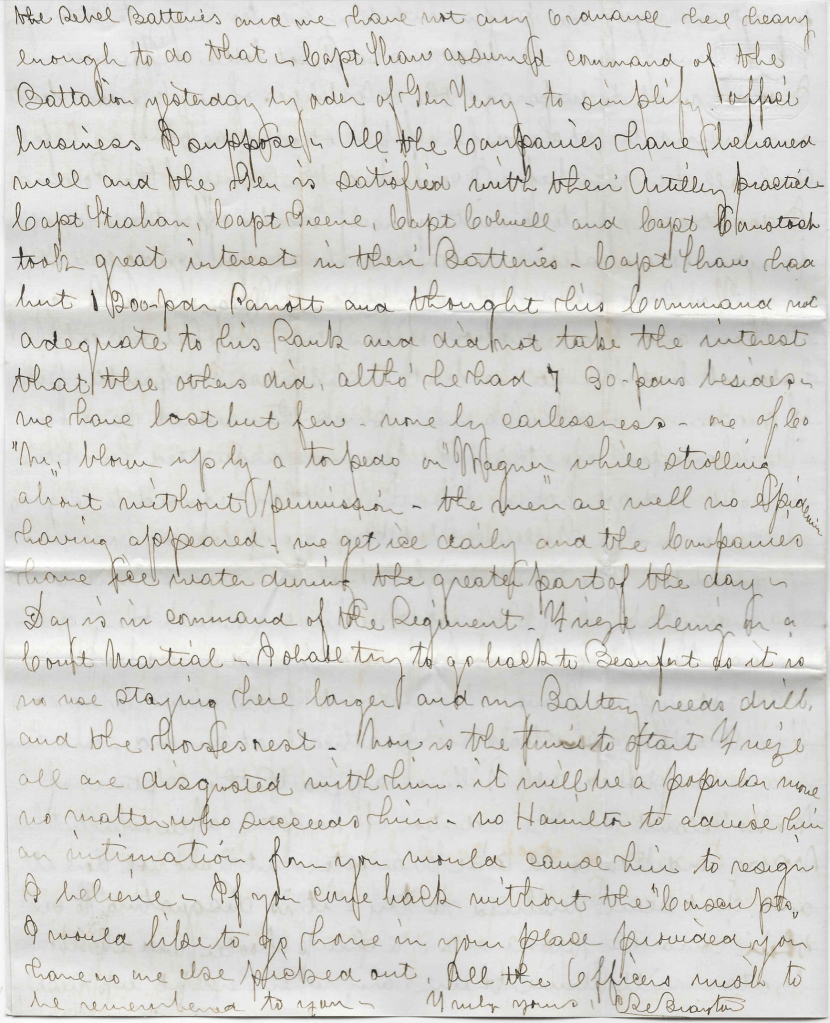 the Rebel Batteries and we have not any Ordnance here heavy
enough to do that – Capt Shaw assumed command of the
Battalion yesterday by order of Gen Terry – to simplify office
business I suppose – All the Companies have behaved
well and the Gen is satisfied with their Artillery practice –
Capt Strahan, Capt Greene, Capt Colwell and Capt
took great interest in their Batteries – Capt Shaw had
but 1 200-pdr Parrott and thought this Command not
adequate to his Rank and did not take the interest
that the others did, altho' he had 7 30-pdrs besides –
we have lost but few – none by carlessness – one of Co
"M", blown up by a torpedo on "Wagner" while strolling
about without permission – the men are well no Epidemic
having appeared – we get ice daily and the Companies
have Ice water during the greater part of the day –
Day is in command of the Regiment – Frieze being on a
Court Martial – I shall try to go back to Beaufort as it is
no use staying here longer and my Battery needs drill,
and the horses rest – Now is the time to start Frieze
all are disgusted with him – it will be a popular move
no matter who succeeds him – no Hamilton to advise him
an intimation from you would cause him to resign
I believe – If you come back without the "Conscripts,"
I would like to go home in your place provided you
have no one else picked out. All the Officers wish to
be remembered to you – Truly yours, C R Brayton